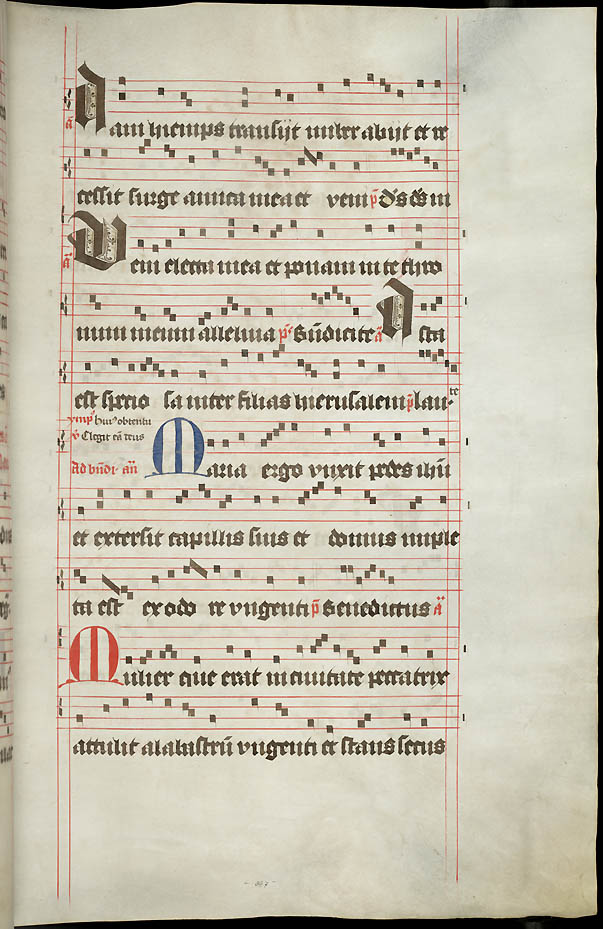 a̅ Iam hiemps transijt imber abijt et re
cessit surge amica mea et veni p̄ d̄s d̄s m
a̅ Veni electa mea et ponam in te thro
num meum alleluia p̄s B̄ndicite a̅ Ista
est specio sa inter filias iherusalem p̄ lau te
ymp̄ huiꝰ obtentu
v̄ Elegit eā deus
Ad b̄ndi· an̄ Maria ergo vnxit pedes ihū
et extersit capillis suis et domus imple
ta est ex odo re vngenti p̄ Benedictus a̅
Mulier que erat in ciuitate peccatrix
attulit alabastrū vngenti et stans secus